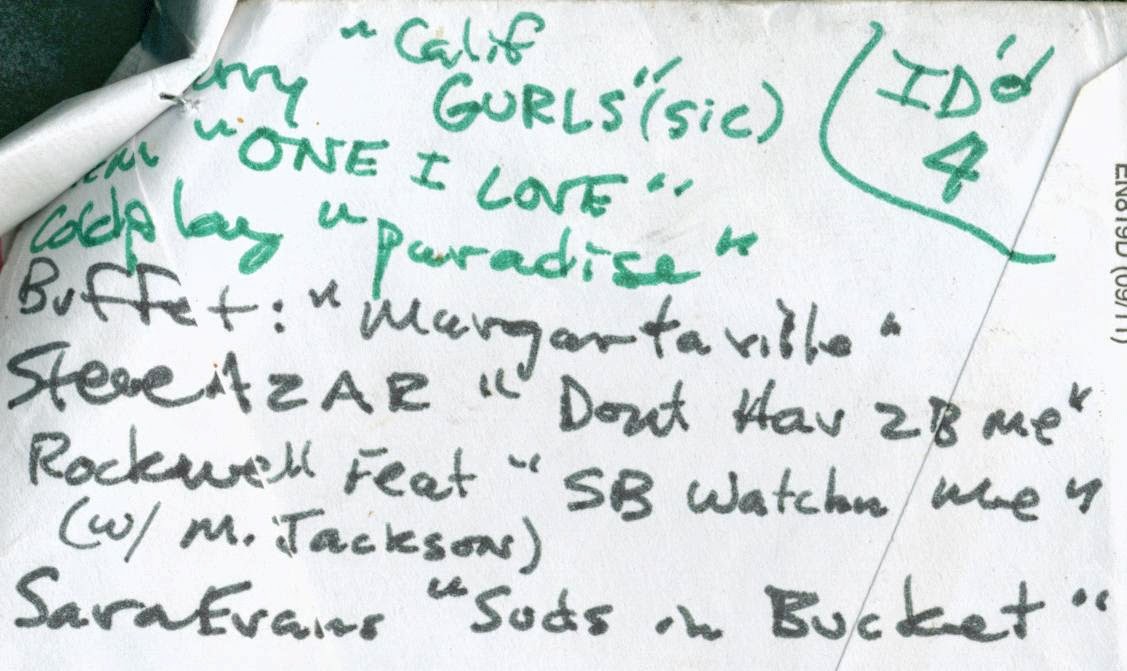 "Calif
GURLS" (sic)
"ONE I LOVE"
Coldplay "paradise"
Buffet: "Margartaville"
Steve AZAR "Dont Hav 2B me"
Rockwell Feat "SB Watchn Me"
(w/ M. Jackson)
Sara Evans "Suds in Bucket"
ID'd
4
EN819D (09/11)